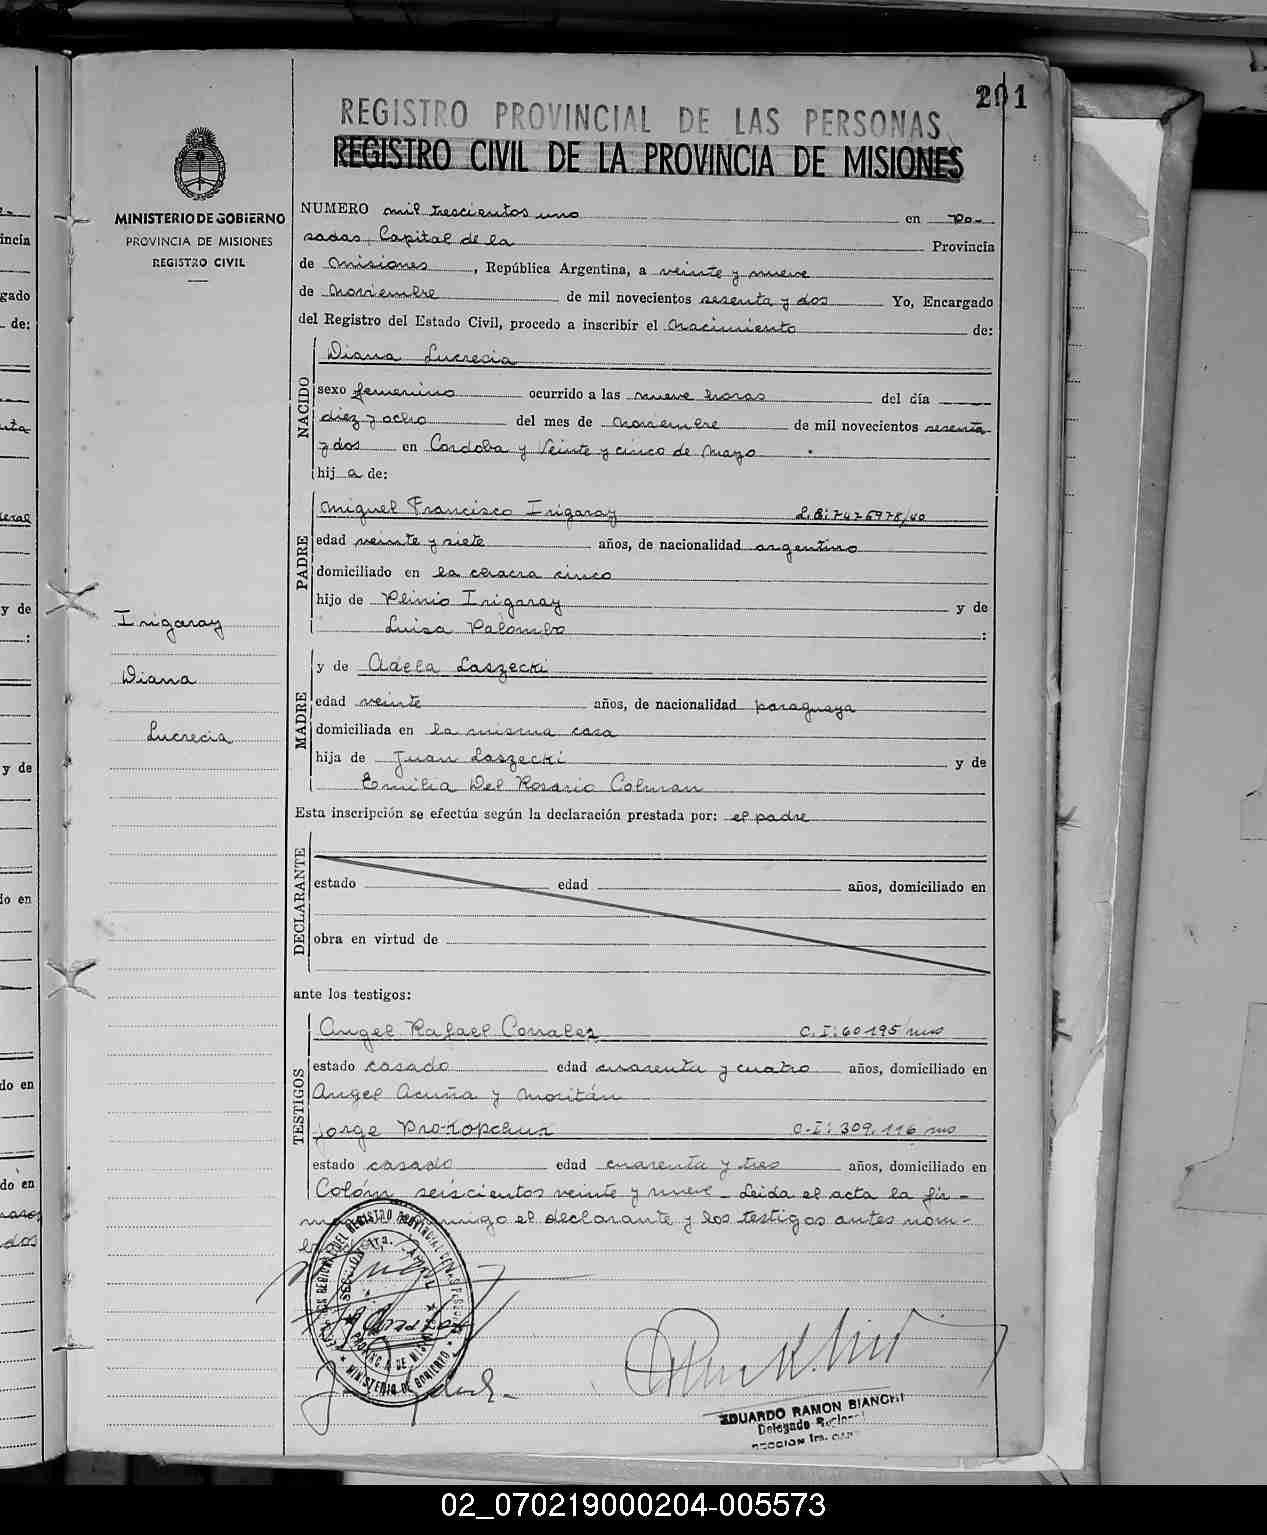 201
REGISTRO PROVINCIAL DE LAS PERSONAS
REGISTRO CIVIL DE LA PROVINCIA DE MISIONES
MINISTERIO DE GOBIERNO
PROVINCIA DE MISIONES
REGISTRO CIVIL
NUMERO mil trescientos uno en Po-
sadas, Capital de la Provincia
de Misiones, República Argentina, a veinte y nueve
de Noviembre de mil novecientos sesenta y dos Yo, Encargado
del Registro del Estado Civil, procedo a inscribir el Nacimiento de:
NACIDO
Diana Lucrecia
sexo femenino ocurrido a las nueve horas del día
diez y ocho del mes de Noviembre de mil novecientos sesenta
y dos en Cordoba y Veinte y cinco de Mayo
hija de:
PADRE
Miguel Francisco Irigaray L.E: 7476978/40
edad veinte y siete años, de nacionalidad argentino
domiciliado en la chacra cinco
hijo de Plinio Irigaray y de
Luisa Palombo :
Irigaray
Diana
Lucrecia
MADRE
y de Adela Laszecki
edad veinte años, de nacionalidad paraguaya
domiciliada en la misma casa
hija de Juan Laszecki y de
Emilia Del Rosario Colman
Esta inscripción se efectúa según la declaración prestada por: el padre
DECLARANTE
estado edad años, domiciliado en
obra en virtud de
ante los testigos:
TESTIGOS
Angel Rafael Corrales C.I: 60195/mns
estado casado edad cuarenta y cuatro años, domiciliado en
Angel Acuña y Moritán
Jorge Prokopchuk C.I: 309.116 mns
estado casado edad cuarenta y tres años, domiciliado en
Colón seiscientos veinte y nueve - Leida el acta la fir-
conmigo el declarante y los testigos antes nom-
SECCION 1ra. CAPITAL
PROVINCIA DE MISIONES
MINISTERIO DE GOBIERNO
EDUARDO RAMON BIANCHI
Delegado Regional
SECCION 1ra. CAP
02_070219000204-005573